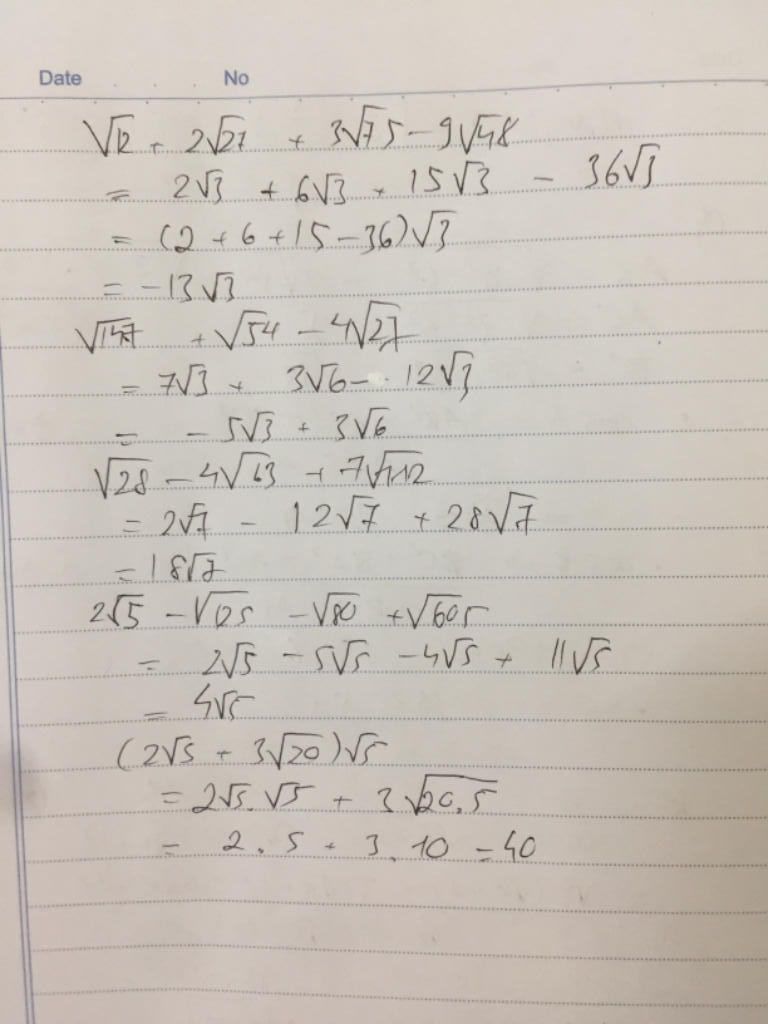 Date No
√12 + 2√27 + 3√75 - 9√48
= 2√3 + 6√3 + 15√3 - 36√3
= (2 + 6 + 15 - 36)√3
= -13√3
√147 + √54 - 4√27
= 7√3 + 3√6 - 12√3
= -5√3 + 3√6
√28 - 4√63 + 7√112
= 2√7 - 12√7 + 28√7
= 18√7
2√5 - √125 - √80 + √605
= 2√5 - 5√5 - 4√5 + 11√5
= 4√5
(2√5 + 3√20)√5
= 2√5.√5 + 3√20.5
= 2.5 + 3.10 = 40